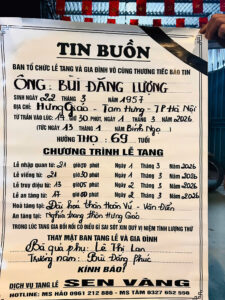 TIN BUỒN
BAN TỔ CHỨC LỄ TANG VÀ GIA ĐÌNH VÔ CÙNG THƯƠNG TIẾC BÁO TIN
ÔNG: BÙI ĐĂNG LƯỢNG
SINH NGÀY 22 THÁNG 3 NĂM 1957
ĐỊA CHỈ: Hưng Giáo - Tam Hưng - TP Hà Nội
TỪ TRẦN VÀO LÚC: 14 GIỜ 30 PHÚT, NGÀY 1 THÁNG 3 NĂM 2026
(TỨC NGÀY 13 THÁNG 1 NĂM Bính Ngọ)
HƯỞNG THỌ: 69 TUỔI
CHƯƠNG TRÌNH LỄ TANG
Lễ nhập quan từ: 21 giờ phút Ngày 1 Tháng 3 Năm 2026
Lễ viếng từ: 21 giờ phút Ngày 1 Tháng 3 Năm 2026
Lễ truy điệu từ: 13 giờ phút Ngày 2 Tháng 3 Năm 2026
Lễ an táng từ: giờ phút Ngày 2 Tháng 3 Năm 2026
Hoả táng tại: Đài hoá thân hoàn Vũ - Văn Điển
An táng tại: Nghĩa trang thôn Hưng Giáo
TRONG LÚC TANG GIA BỐI RỐI CÓ ĐIỀU GÌ SAI SÓT XIN QUÝ VỊ NIỆM TÌNH LƯỢNG THỨ
THAY MẶT BAN TANG LỄ VÀ GIA ĐÌNH
Bà quả phụ: Lê Thị Lan
Trưởng nam: Bùi Đăng Phúc
KÍNH BÁO!
DỊCH VỤ TANG LỄ SEN VÀNG
HOTLINE: MS HẢO 0961 212 888 - MS TÂM 0327 652 556